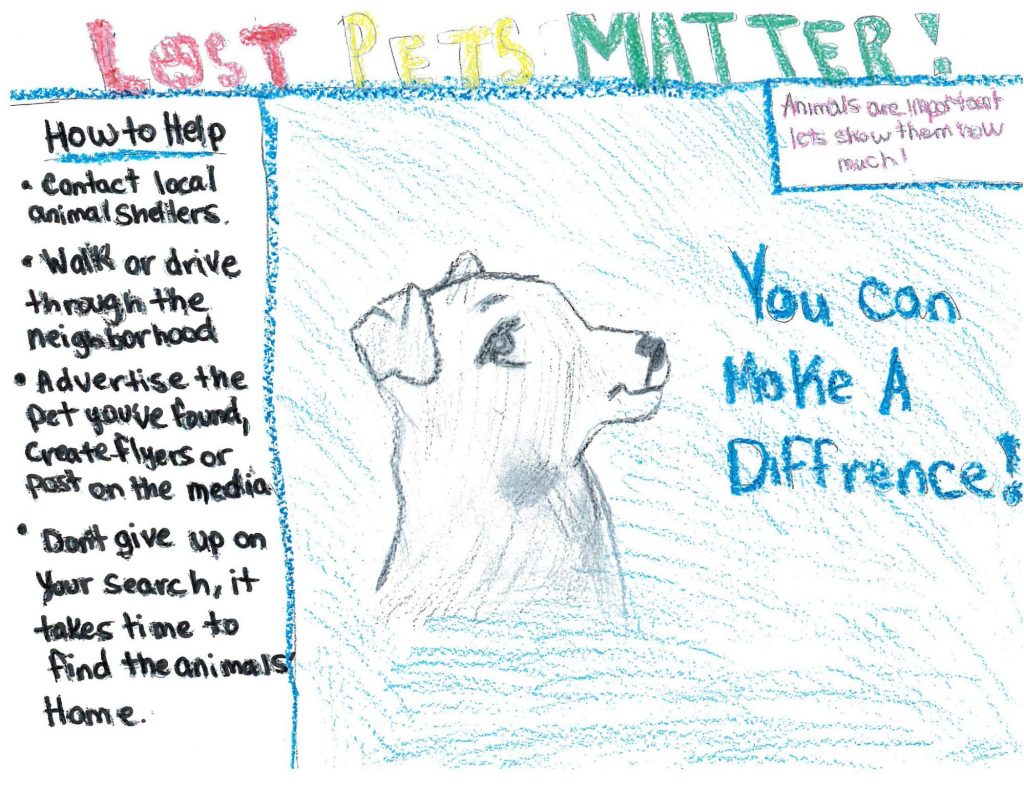 LOST PETS MATTER!
How to Help
• Contact local
animal Shelters.
• Walk or drive
through the
neighborhood
• Advertise the
pet you've found,
create flyers or
post on the media
• Don't give up on
your search, it
takes time to
find the animals
Home.
Animals are important
lets show them how
much!
You can
Make A
Diffrence!